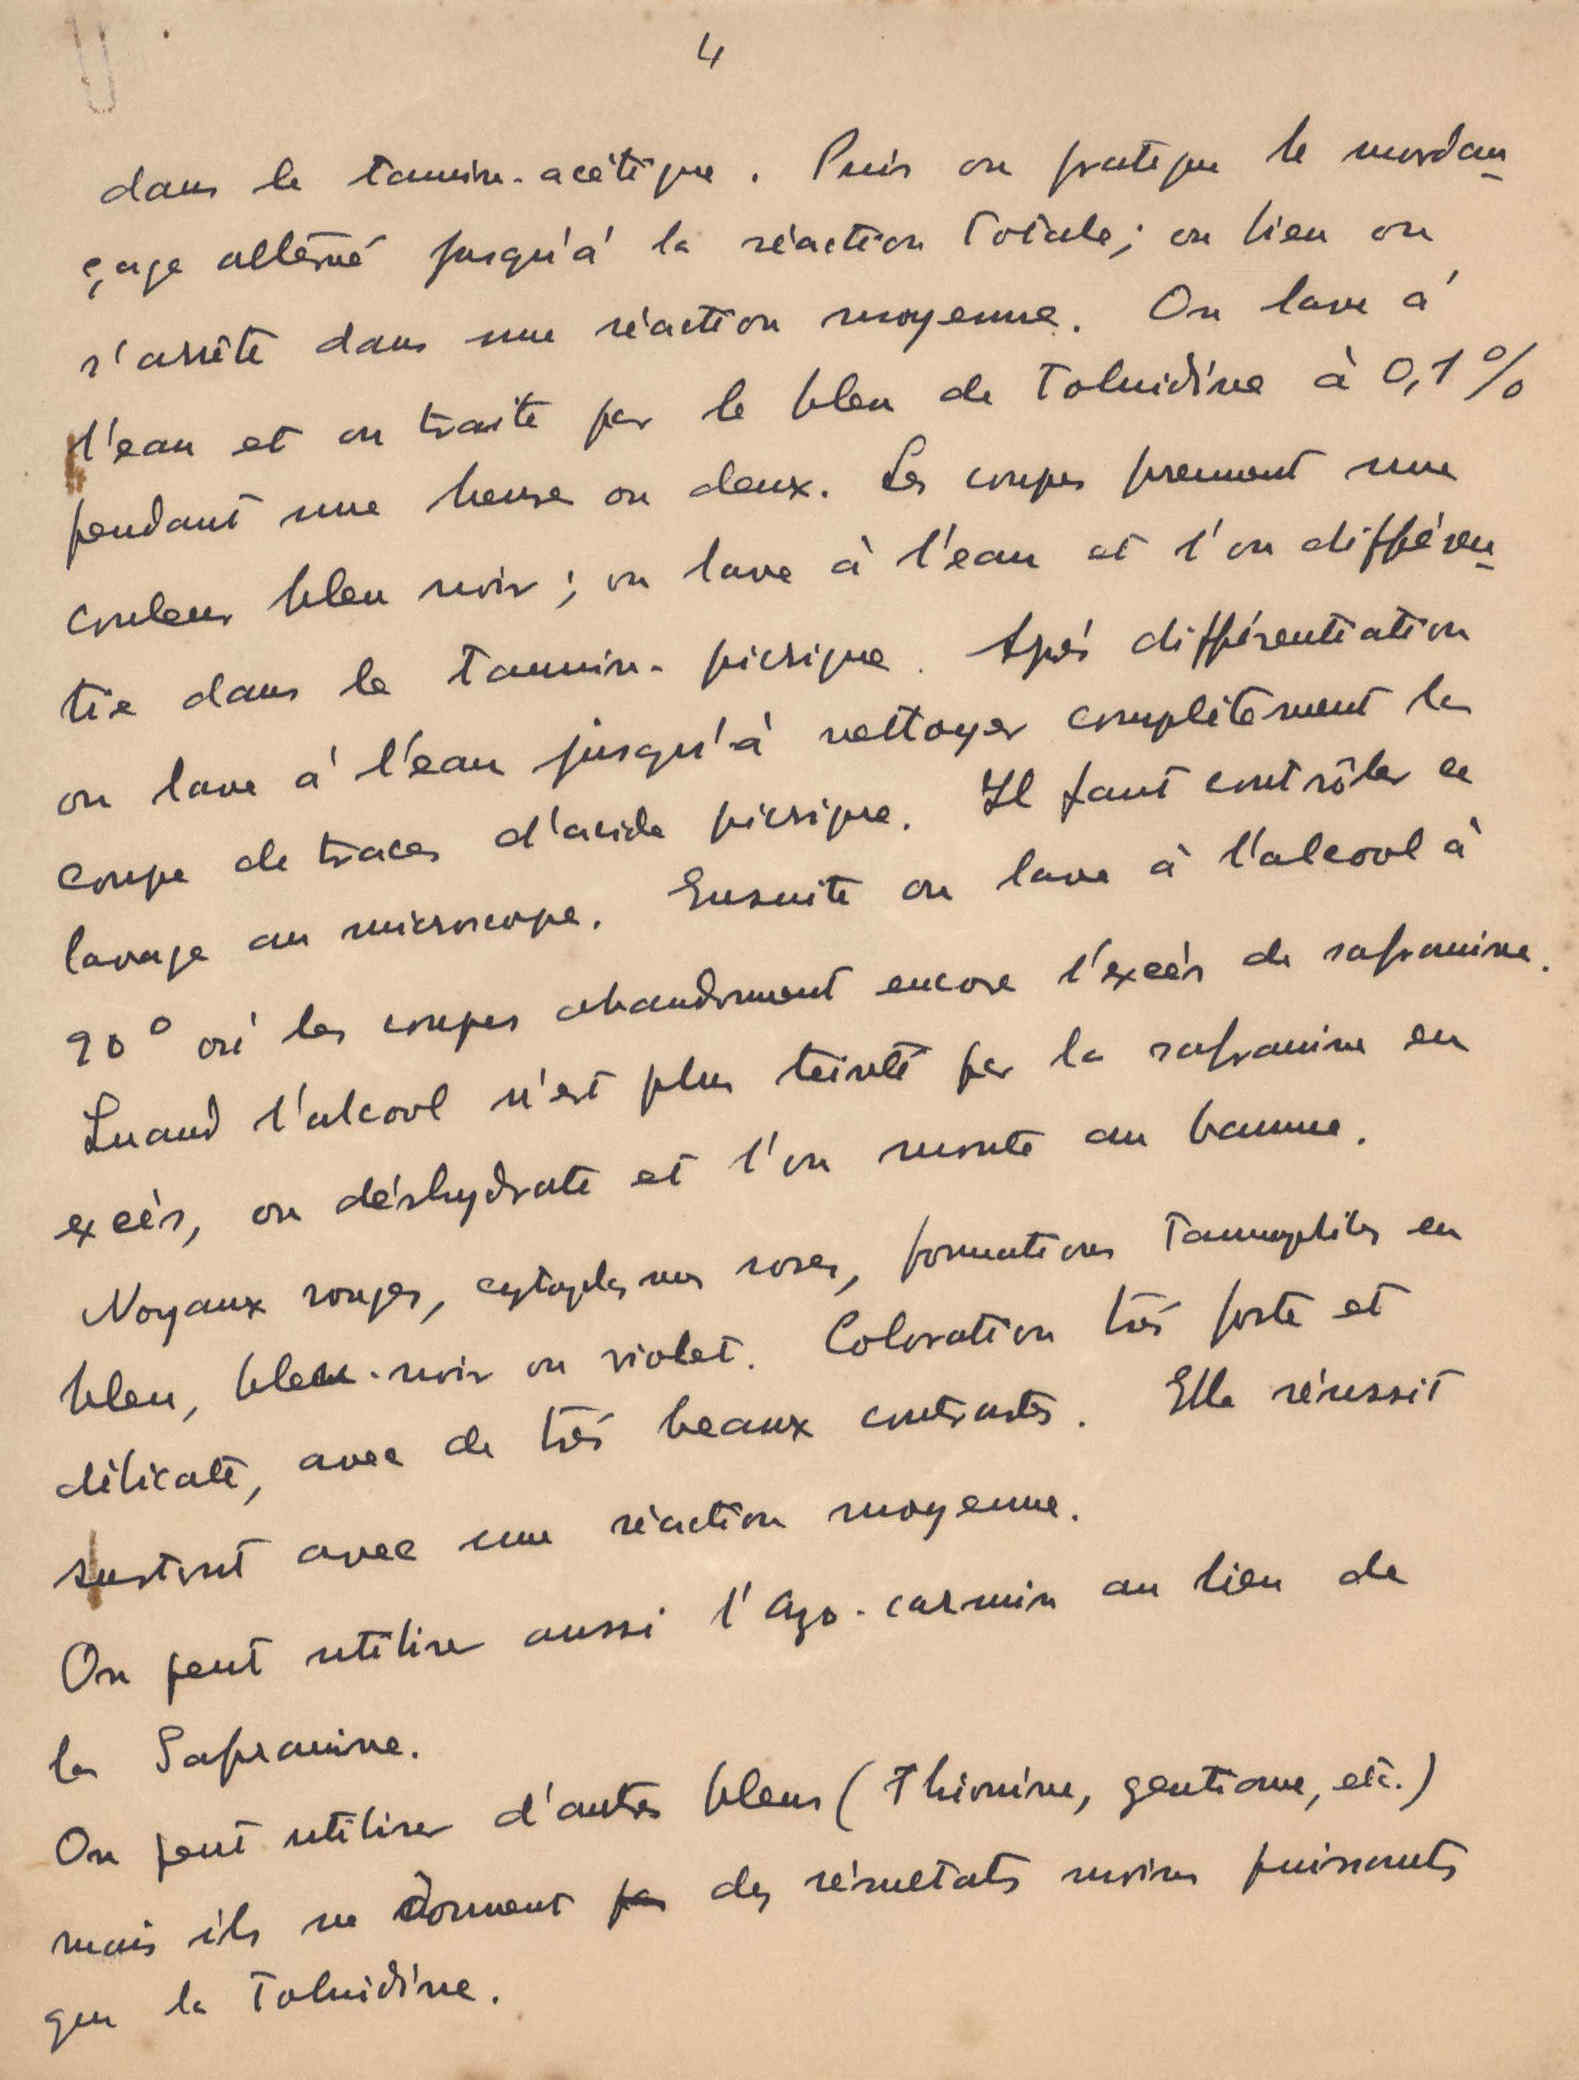 4
dans le tannin-acétique. Puis on pratique le mordan-
çage alterné jusqu'à la réaction totale; ou bien on
s'arrête dans une réaction moyenne. On lave à
l'eau et on traite par le bleu de Toluidine à 0,1%
pendant une heure ou deux. Les coupes prennent une
couleur bleu noir; on lave à l'eau et l'on différen-
tie dans le tannin-picrique. Après différentiation
on lave à l'eau jusqu'à nettoyer complètement la
coupe de traces d'acide picrique. Il faut contrôler ce
lavage au microscope. Ensuite on lave à l'alcool à
90° où les coupes abandonnent encore l'excès de safranine.
Quand l'alcool n'est plus teinté par la safranine en
excès, on déshydrate et l'on monte au baume.
Noyaux rouges, cytoplasmes roses, formations tannophiles en
bleu, bleu-noir ou violet. Coloration très forte et
délicate, avec de très beaux contrastes. Elle réussit
surtout avec une réaction moyenne.
On peut utiliser aussi l'Azo-carmin au lieu de
la Safranine.
On peut utiliser d'autres bleus (Thionine, gentiane, etc.)
mais ils ne donnent pas des résultats moins puissants
que la Toluidine.